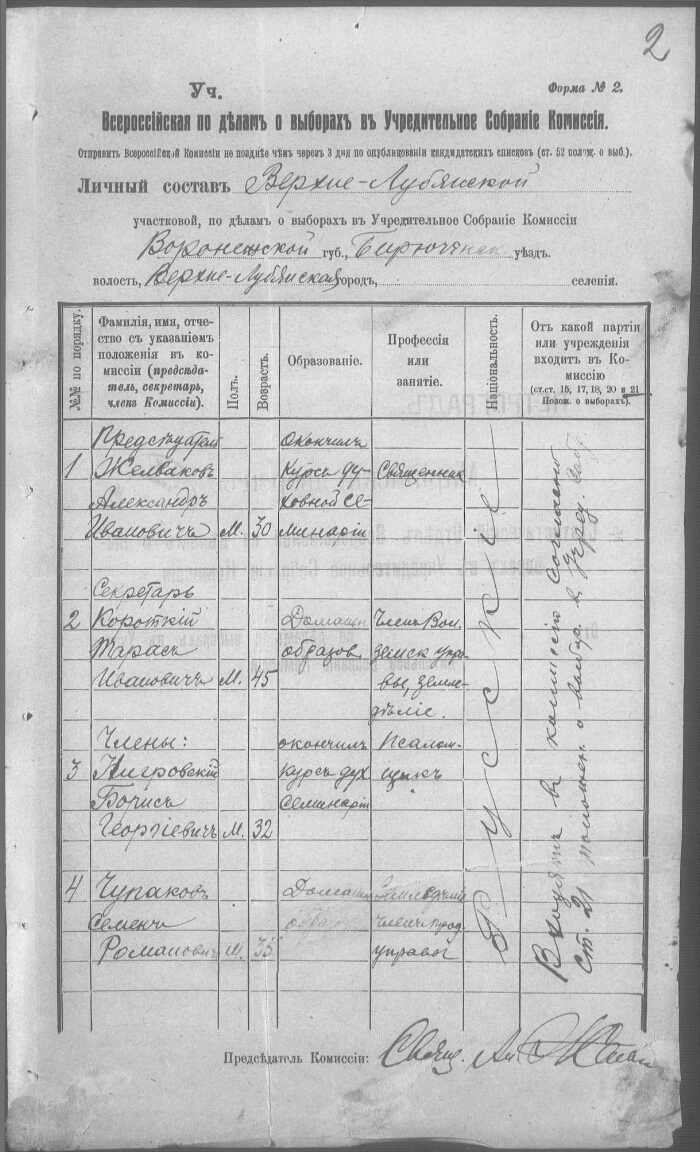 2
Уч.
Форма № 2.
Всероссійская по дѣламъ о выборахъ въ Учредительное Собраніе Комиссія.
Отправить Всероссійской Комиссіи не позднѣе чѣмъ черезъ 3 дня по опубликованіи кандидатскихъ списковъ (ст. 52 полож. о выб.).
Личный составъ Верхне-Лубянской
участковой, по дѣламъ о выборахъ въ Учредительное Собраніе Комиссіи
Воронежской губ., Бирюченск уѣздъ.
волость, Верхне-Лубянская городъ, селенія.
№№ по порядку.
Фамилія, имя, отчество съ указаніемъ положенія въ комиссіи (предсѣдатель, секретарь, членъ Комиссіи).
Полъ.
Возрастъ.
Образованіе.
Профессія или занятіе.
Національность.
Отъ какой партіи или учрежденія входитъ въ Комиссію (ст.ст. 15, 17, 18, 20 и 21 Полож. о выборахъ).
Предсѣдатель Окончилъ
1 Желваковъ Курсъ ду- Священник
Александръ ховной се-
Ивановичъ М. 30 минаріи
Секретарь
2 Короткій Домашн. Членъ Вол.
Тарасъ образов. земск упра-
Ивановичъ М. 45 вы, земле-
дѣліе.
Члены: окончилъ Псалом-
3 Нигровскій курсъ дух щикъ
Борисъ семинаріи
Георгіевичъ М. 32
4 Чупаковъ Домашн Земледѣліе
Семенъ образ членъ прод.
Романович М. 35 управы
Русскіе
Входятъ въ комиссію согласно
ст. 21 положен. о выбор. в Учред. Собр.
Предсѣдатель Комиссіи: Свящ. Ал.